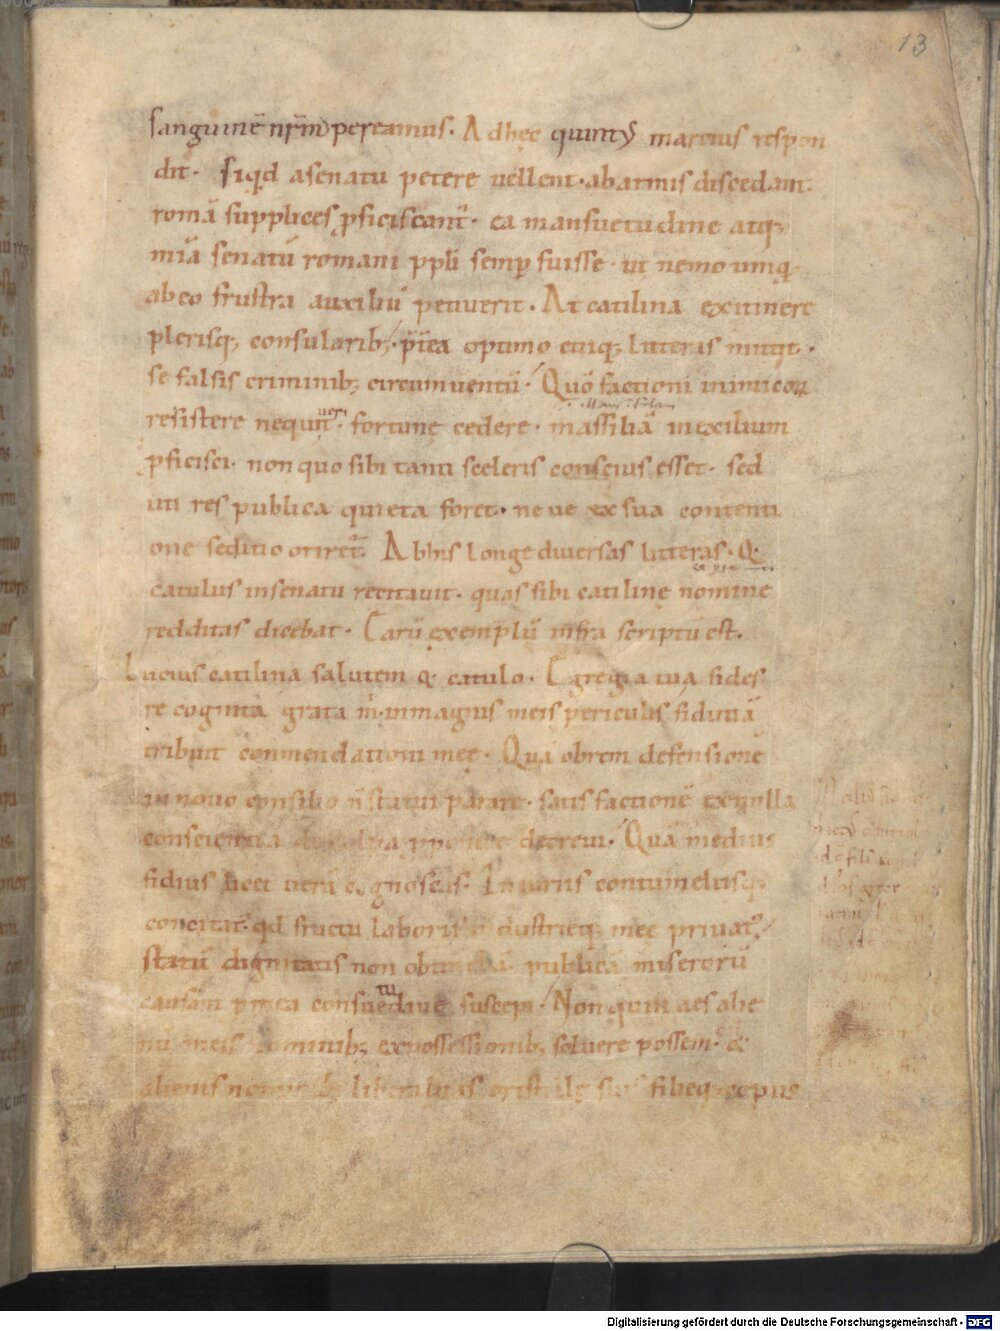 13
sanguinē nr̄m pereamus. Ad hęc quintꝰ marcius respon
dit. Siqd asenatu petere vellent. abarmis discedant.
romā supplices ꝓficiscant̄. ea mansuetudine atq;
miā senatū romani ppli semꝑ fuisse. ut nemo umq̄
abeo frustra auxiliū petiverit. At catilina exitinere
plerisq; consularib;. p̄terea optimo cuiq; litteras mittit.
se falsis criminib; circumventū. Quō factioni inimicoꝝ
resistere nequiverit. fortunę cedere. massiliā inexilium
ꝓficisci. non quo sibi tanti sceleris conscius esset. sed
uti res publica quieta foret. neve exsua contenti
one seditio oriret̄. Abhis longe diversas litteras. Q.
catulus insenatu recitavit. quas sibi catilinę nomine
redditas dicebat. Earū exemplū infra scriptū est.
Lucius catilina salutem q. catulo. Egregia tua fides
re cognita grata m̄. inmagnis meis periculis fidutiā
tribuit conmendationi meę. Quā obrem defensionē
innovo consilio n̄ statui parare. satisfactionē exnulla
conscientia deculpa ꝓponere decrevi. Quā medius
fidius licet verā cognoscas. Iniuriis contumeliisq;
concitatꝰ. qd fructu laboris industrięq; meę privatꝰ.
statū dignitatis non obtinebā. publicā miserorū
causam pro mea consuetudine suscepi. Non quin aes alie
nū meis nominib; expossessionib; solvere possem. &
alienis nominib; liberalitas orestillę suis filięq; copiis